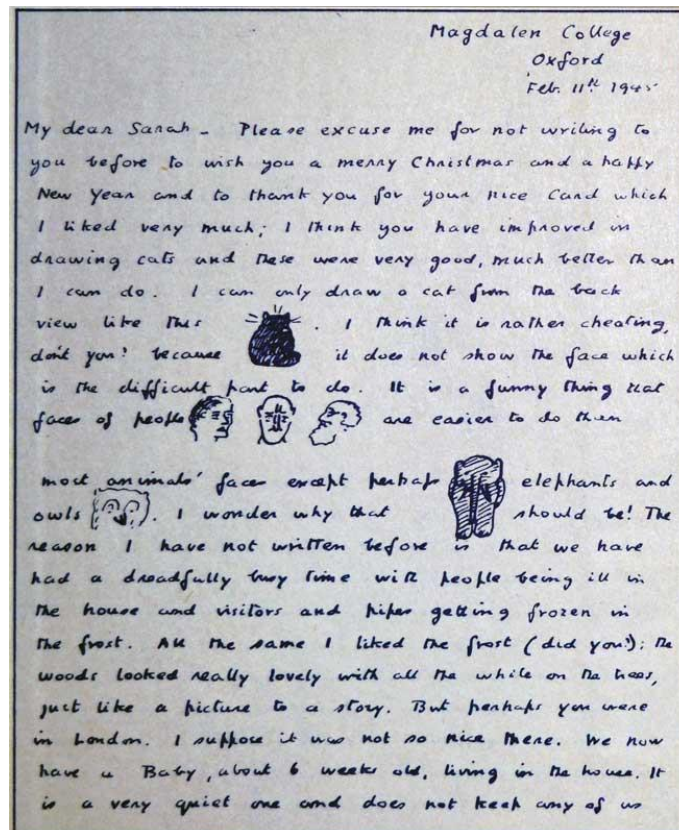 Magdalen College
Oxford
Feb. 11th 1945
My dear Sarah - Please excuse me for not writing to
you before to wish you a merry Christmas and a happy
New Year and to thank you for your nice card which
I liked very much; I think you have improved in
drawing cats and these were very good, much better than
I can do. I can only draw a cat from the back
view like this . I think it is rather cheating,
don't you? because it does not show the face which
is the difficult part to do. It is a funny thing that
faces of people are easier to do than
most animals' faces except perhaps elephants and
owls . I wonder why that should be! The
reason I have not written before is that we have
had a dreadfully busy time with people being ill in
the house and visitors and pipes getting frozen in
the frost. All the same I liked the frost (did you?): the
woods looked really lovely with all the white on the trees,
just like a picture to a story. But perhaps you were
in London. I suppose it was not so nice there. We now
have a Baby, about 6 weeks old, living in the house. It
is a very quiet one and does not keep any of us